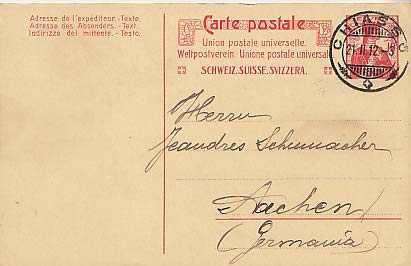 Adresse de l'expéditeur.-Texte.
Adresse des Absenders.-Text.
Indirizzo del mittente.-Testo.
Carte postale
Union postale universelle.
Weltpostverein. Unione postale universale
SCHWEIZ. SUISSE. SVIZZERA.
CHIASSO
21.II.12.
Herrn
Jeandres Schumacher
Aachen
(Germania)